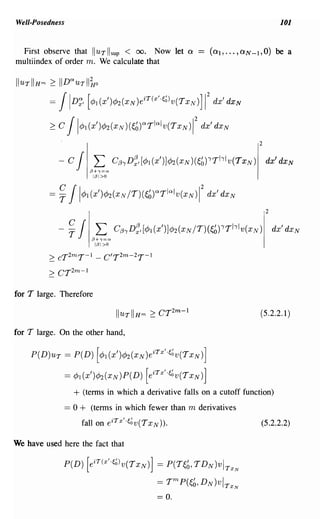 Well-Posedness 101
First observe that ||u_T||_sup < ∞. Now let α = (α₁, . . . , α_{N−1}, 0) be a
multiindex of order m. We calculate that
||u_T||_{H^m} ≥ ||D^α u_T||²_{H^0}
= ∫ |D^α_{x'} [φ₁(x')φ₂(x_N)e^{iT(x'·ξ'_0)}v(Tx_N)]|² dx' dx_N
≥ C ∫ |φ₁(x')φ₂(x_N)(ξ'_0)^α T^{|α|}v(Tx_N)|² dx' dx_N
− C ∫ |∑_{β+γ=α, |β|>0} C_{βγ}D^β_{x'}[φ₁(x')]φ₂(x_N)(ξ'_0)^γ T^{|γ|}v(Tx_N)|² dx' dx_N
= C/T ∫ |φ₁(x')φ₂(x_N/T)(ξ'_0)^α T^{|α|}v(x_N)|² dx' dx_N
− C/T ∫ |∑_{β+γ=α, |β|>0} C_{βγ}D^β_{x'}[φ₁(x')]φ₂(x_N/T)(ξ'_0)^γ T^{|γ|}v(x_N)|² dx' dx_N
≥ cT^{2m}T^{−1} − C'T^{2m−2}T^{−1}
≥ CT^{2m−1}
for T large. Therefore
||u_T||_{H^m} ≥ CT^{2m−1} (5.2.2.1)
for T large. On the other hand,
P(D)u_T = P(D) [φ₁(x')φ₂(x_N)e^{iTx'·ξ'_0}v(Tx_N)]
= φ₁(x')φ₂(x_N)P(D) [e^{iTx'·ξ'_0}v(Tx_N)]
+ (terms in which a derivative falls on a cutoff function)
= 0 + (terms in which fewer than m derivatives
fall on e^{iTx'·ξ'_0}v(Tx_N)). (5.2.2.2)
We have used here the fact that
P(D) [e^{iT(x'·ξ'_0)}v(Tx_N)] = P(Tξ'_0, TD_N)v|_{Tx_N}
= T^m P(ξ'_0, D_N)v|_{Tx_N}
= 0.